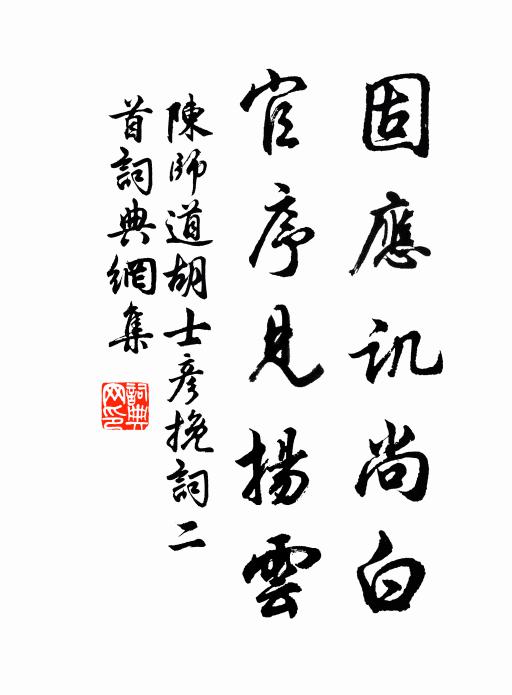 固應訊尚白
官序見揚雲
陳師道胡士彥挽詞二
首詞典網集
詞典網印